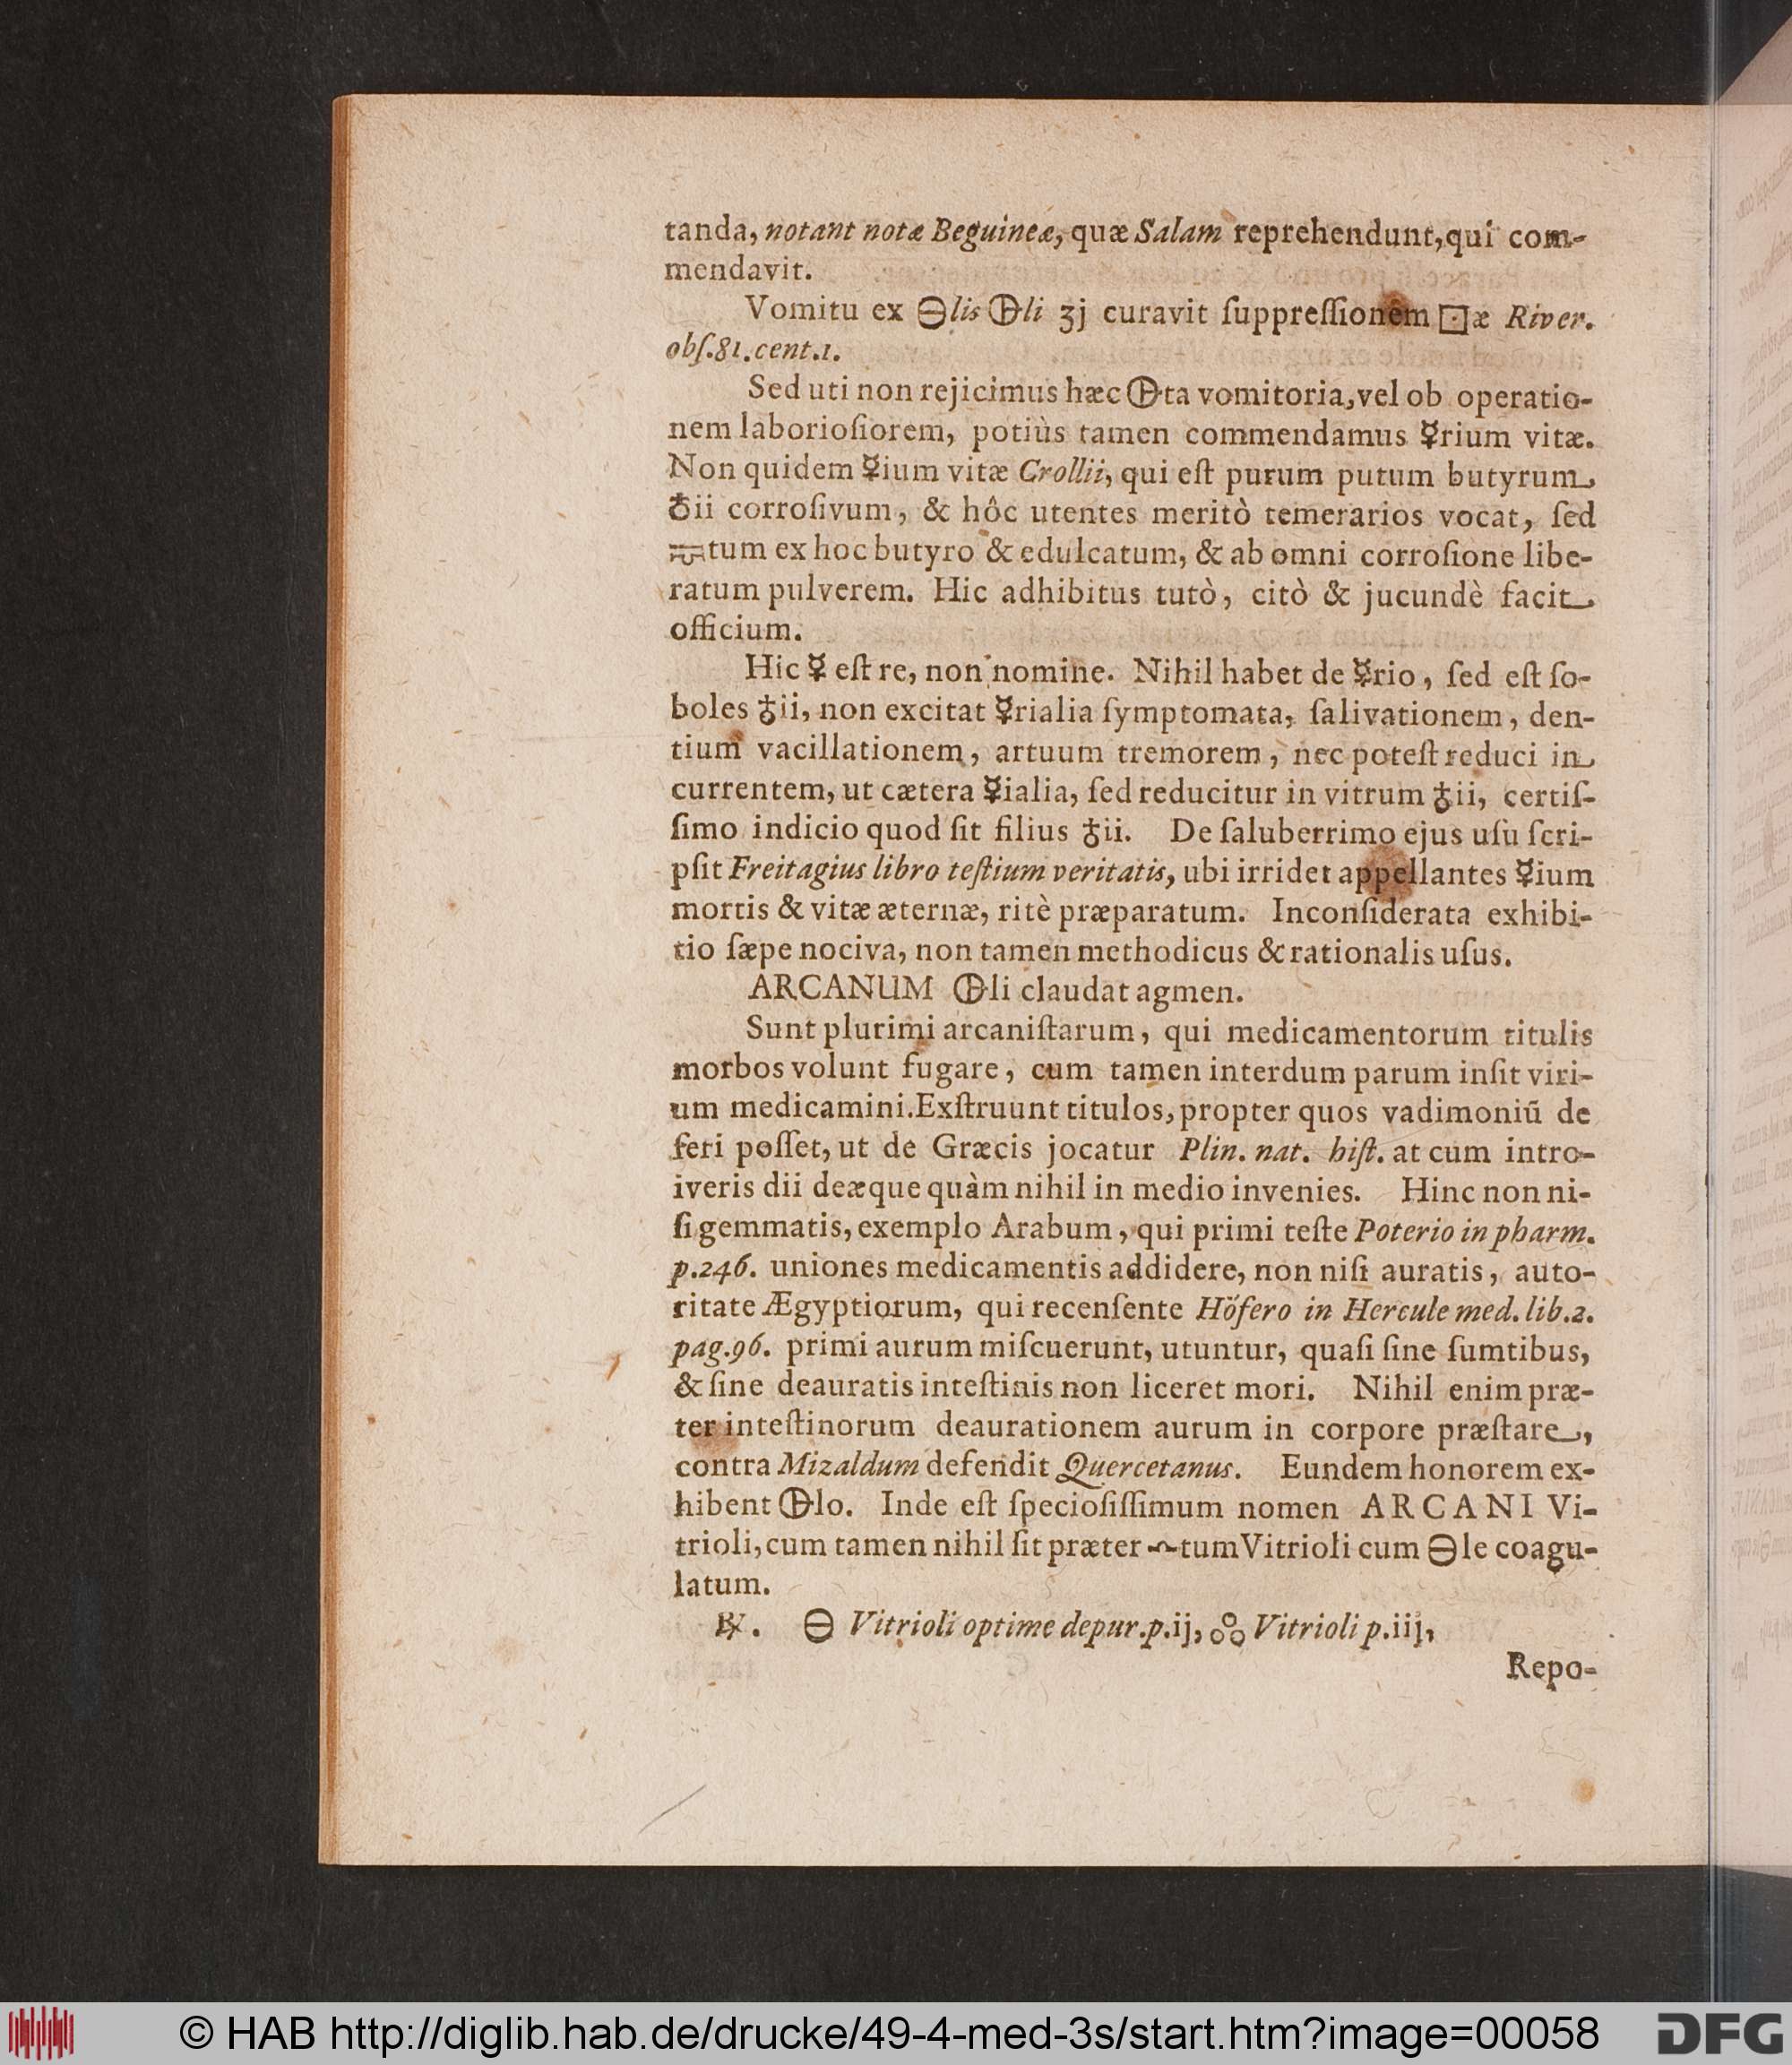 tanda, notant notæ Beguineæ, quæ Salam reprehendunt, qui com-
mendavit.
Vomitu ex 🜔lis 🜖li ʒj curavit ſuppreſſionêm 🝕æ River.
obſ.81.cent.1.
Sed uti non rejicimus hæc 🜖ta vomitoria, vel ob operatio-
nem laborioſiorem, potiùs tamen commendamus ☿rium vitæ.
Non quidem ☿ium vitæ Crollii, qui eſt purum putum butyrum
♁ii corroſivum, & hôc utentes meritò temerarios vocat, ſed
tum ex hoc butyro & edulcatum, & ab omni corroſione libe-
ratum pulverem. Hic adhibitus tutò, citò & jucundè facit
officium.
Hic ☿ eſt re, non nomine. Nihil habet de ☿rio, ſed eſt ſo-
boles ♁ii, non excitat ☿rialia ſymptomata, ſalivationem, den-
tium vacillationem, artuum tremorem, nec poteſt reduci in
currentem, ut cætera ☿ialia, ſed reducitur in vitrum ♁ii, certiſ-
ſimo indicio quod ſit filius ♁ii. De ſaluberrimo ejus uſu ſcri-
pſit Freitagius libro teſtium veritatis, ubi irridet appellantes ☿ium
mortis & vitæ æternæ, ritè præparatum. Inconſiderata exhibi-
tio ſæpe nociva, non tamen methodicus & rationalis uſus.
ARCANUM 🜖li claudat agmen.
Sunt plurimi arcaniſtarum, qui medicamentorum titulis
morbos volunt fugare, cum tamen interdum parum inſit viri-
um medicamini. Exſtruunt titulos, propter quos vadimoniũ de
feri poſſet, ut de Græcis jocatur Plin. nat. hiſt. at cum intro-
iveris dii deæque quàm nihil in medio invenies. Hinc non ni-
ſi gemmatis, exemplo Arabum, qui primi teſte Poterio in pharm.
p.246. uniones medicamentis addidere, non niſi auratis, auto-
ritate Ægyptiorum, qui recenſente Höfero in Hercule med. lib.2.
pag.96. primi aurum miſcuerunt, utuntur, quaſi ſine ſumtibus,
& ſine deauratis inteſtinis non liceret mori. Nihil enim præ-
ter inteſtinorum deaurationem aurum in corpore præſtare,
contra Mizaldum defendit Quercetanus. Eundem honorem ex-
hibent 🜖lo. Inde eſt ſpecioſiſſimum nomen ARCANI Vi-
trioli, cum tamen nihil ſit præter tum Vitrioli cum 🜔le coagu-
latum.
℞. 🜔 Vitrioli optime depur. p.ij, 🝆 Vitrioli p.iij,
Repo-
© HAB http://diglib.hab.de/drucke/49-4-med-3s/start.htm?image=00058
DFG